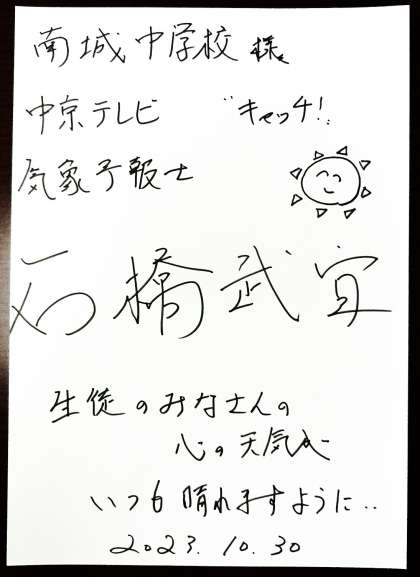 南城中学校 様
中京テレビ "キャッチ!"
気象予報士
石橋武宜
生徒のみなさんの
心の天気が
いつも晴れますように..
2023.10.30